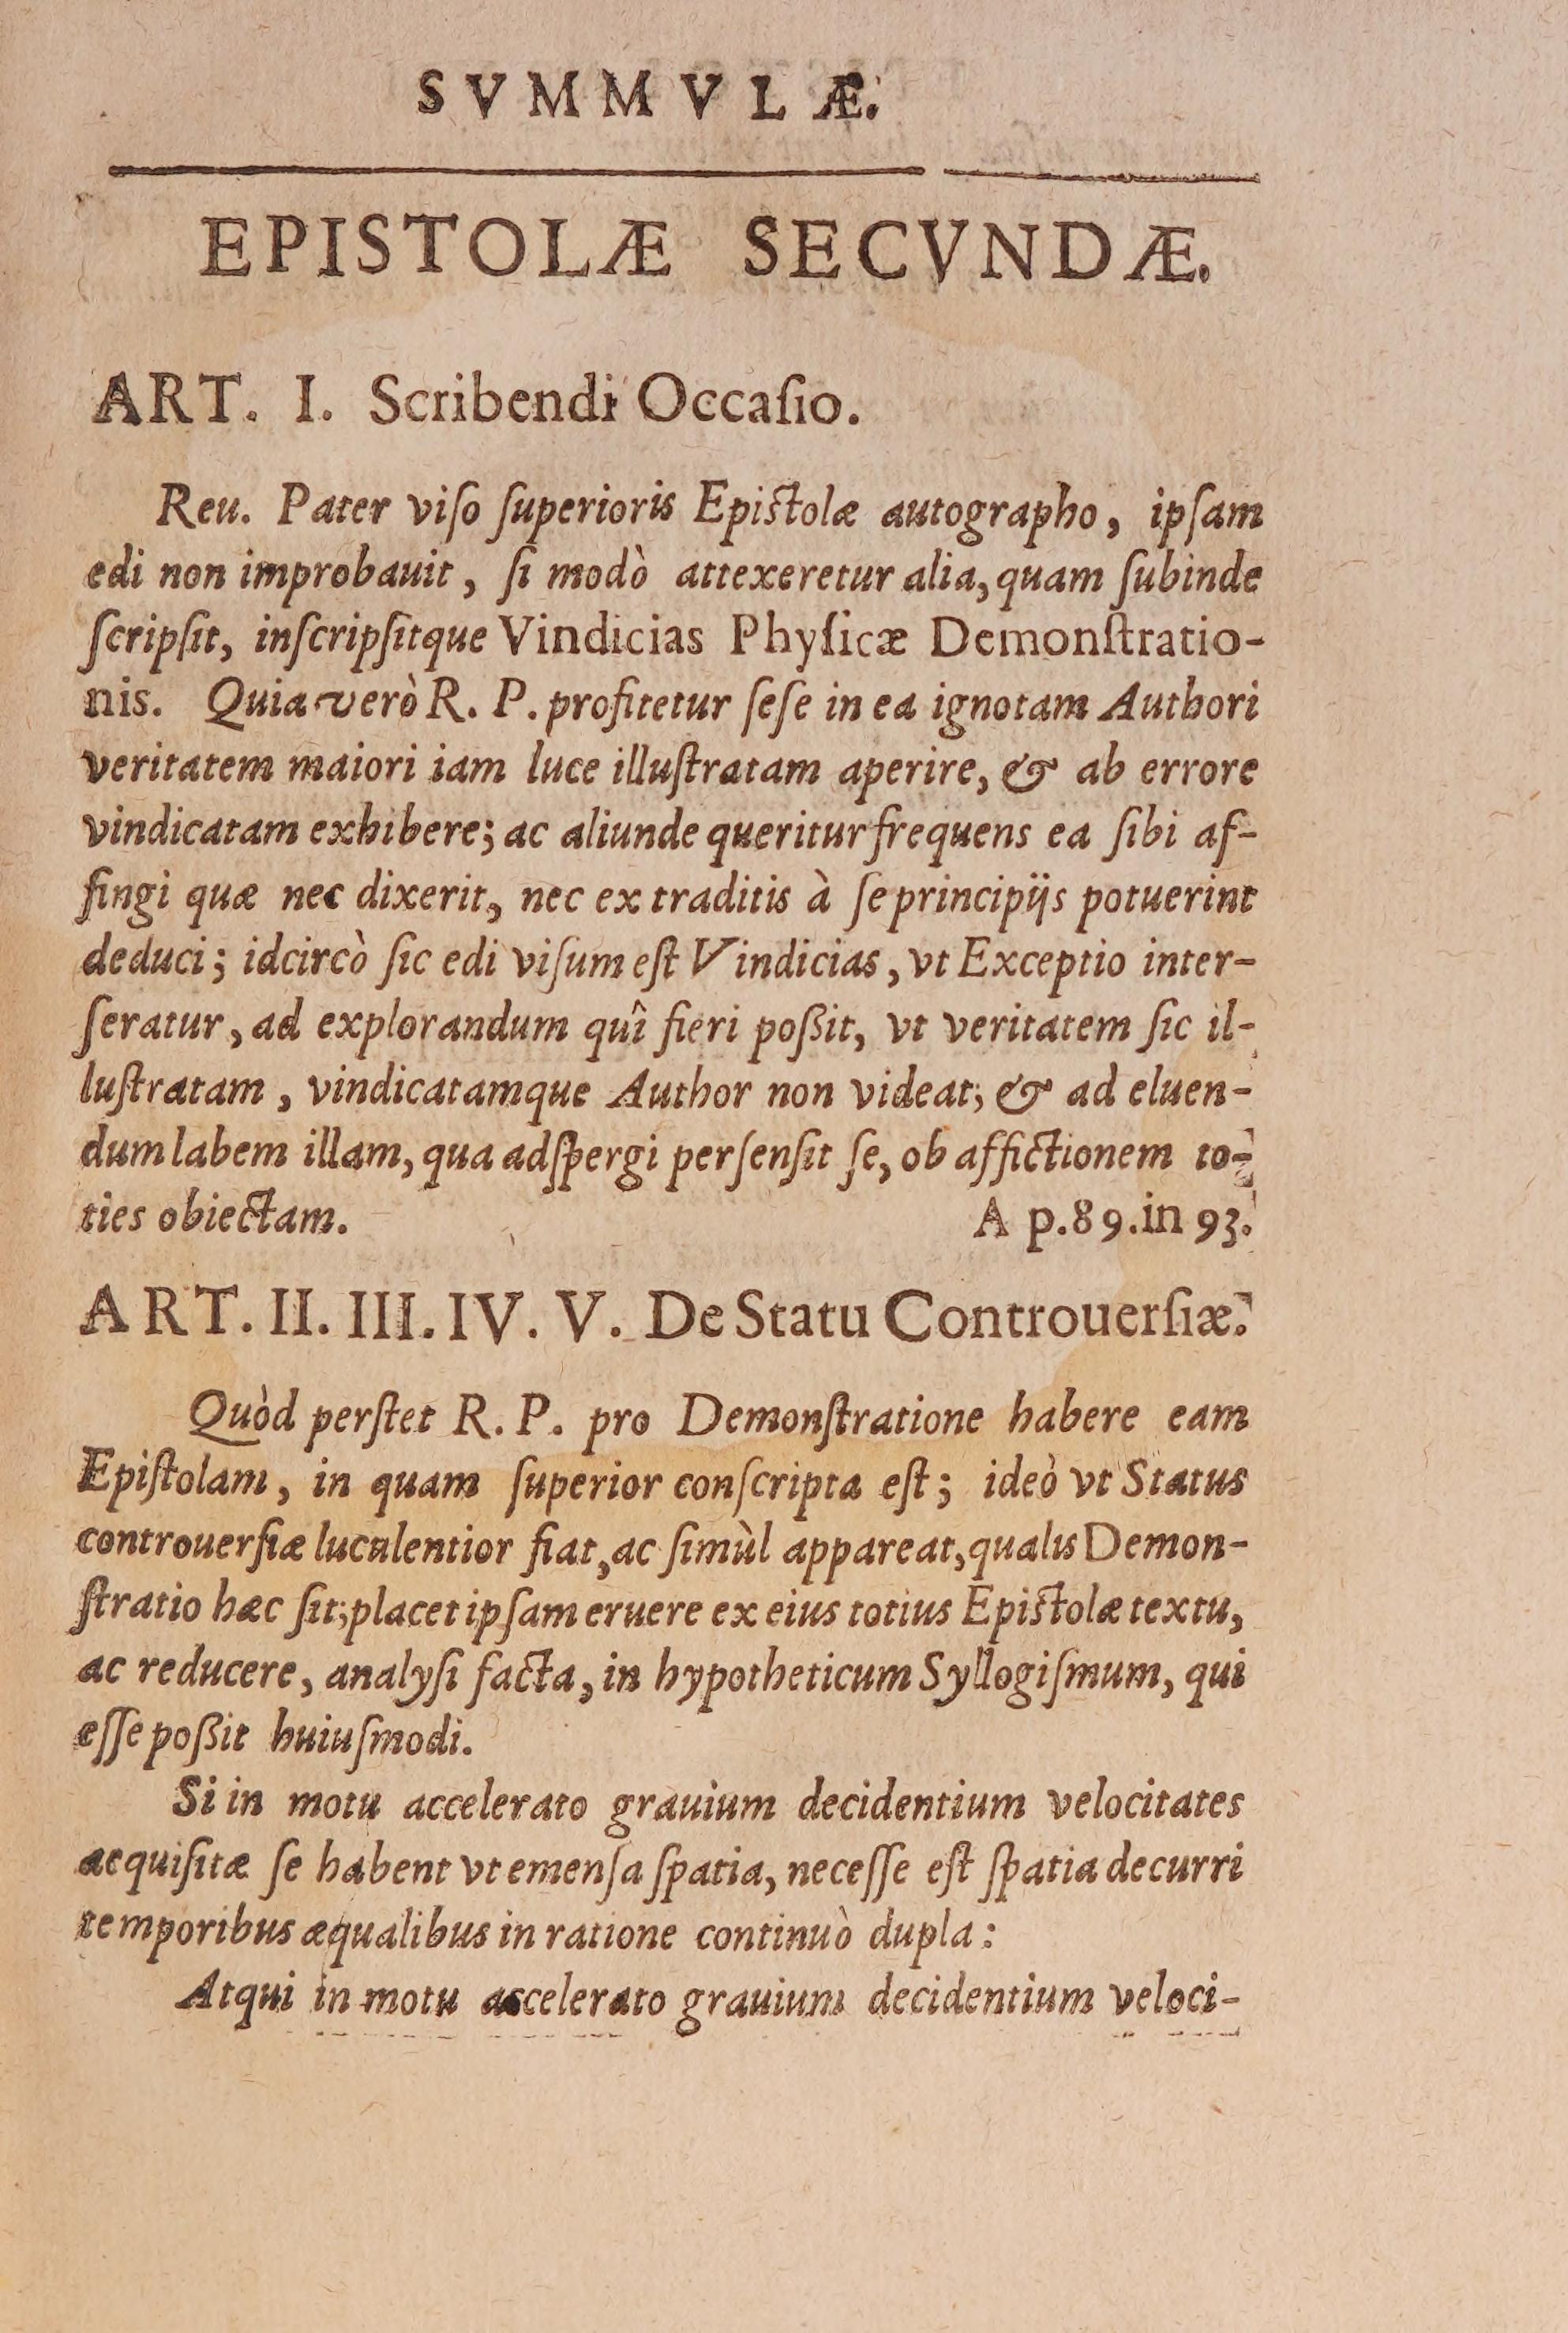 SVMMVLÆ.
EPISTOLÆ SECVNDÆ.
ART. I. Scribendi Occaſio.
Reu. Pater viſo ſuperioris Epiſtolæ autographo, ipſam
edi non improbauit, ſi modò attexeretur alia, quam ſubinde
ſcripſit, inſcripſitque Vindicias Phyſicæ Demonſtratio-
nis. Quia verò R. P. profitetur ſeſe in ea ignotam Authori
veritatem maiori iam luce illuſtratam aperire, & ab errore
vindicatam exhibere; ac aliunde queritur frequens ea ſibi af-
fingi quæ nec dixerit, nec ex traditis à ſe principijs potuerint
deduci; idcircò ſic edi viſum eſt Vindicias, vt Exceptio inter-
ſeratur, ad explorandum quî fieri poßit, vt veritatem ſic il-
luſtratam, vindicatamque Author non videat; & ad eluen-
dum labem illam, qua adſpergi perſenſit ſe, ob affictionem to-
ties obiectam. A p.89.in 93.
ART. II. III. IV. V. De Statu Controuerſiæ.
Quòd perſtet R. P. pro Demonſtratione habere eam
Epiſtolam, in quam ſuperior conſcripta eſt; ideò vt Status
controuerſiæ luculentior fiat, ac ſimùl appareat, qualis Demon-
ſtratio hæc ſit; placet ipſam eruere ex eius totius Epiſtolæ textu,
ac reducere, analyſi facta, in hypotheticum Syllogiſmum, qui
eſſe poßit huiuſmodi.
Si in motu accelerato grauium decidentium velocitates
acquiſitæ ſe habent vt emenſa ſpatia, neceſſe eſt ſpatia decurri
temporibus æqualibus in ratione continuò dupla:
Atqui in motu accelerato grauium decidentium veloci-